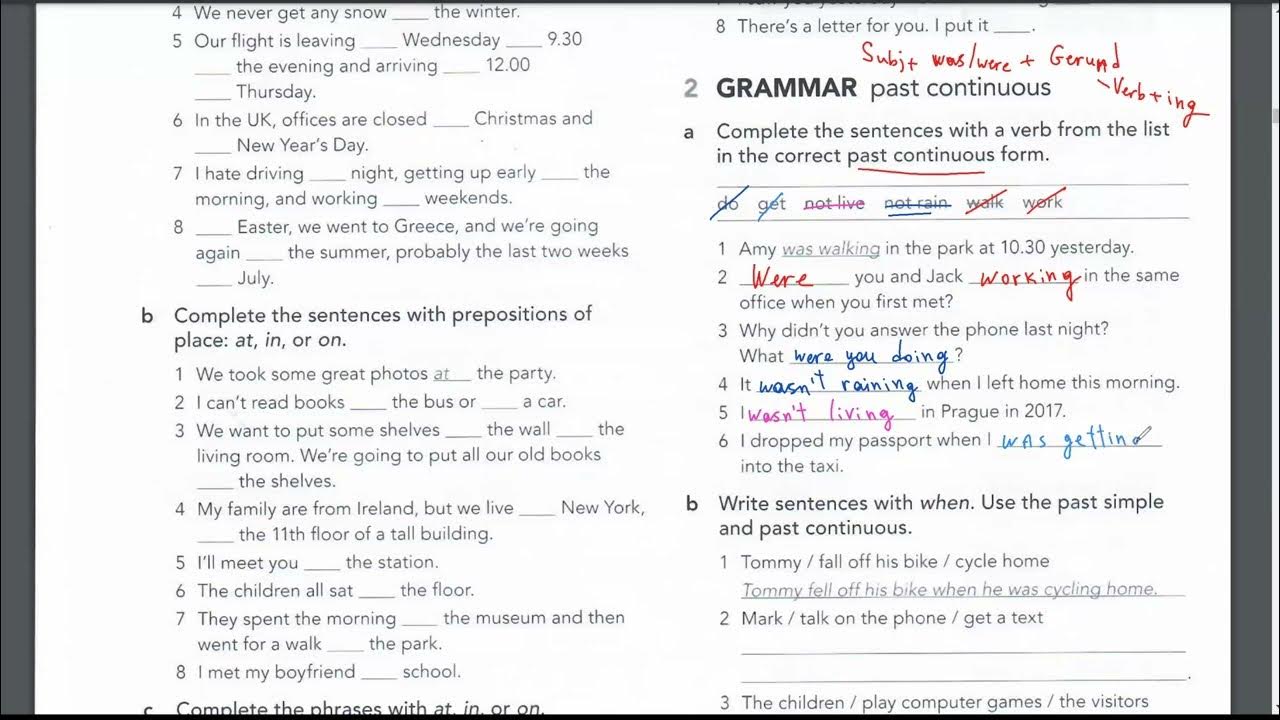 4 We never get any snow ____ the winter.
5 Our flight is leaving ____ Wednesday ____ 9.30
____ the evening and arriving ____ 12.00
____ Thursday.
6 In the UK, offices are closed ____ Christmas and
____ New Year's Day.
7 I hate driving ____ night, getting up early ____ the
morning, and working ____ weekends.
8 ____ Easter, we went to Greece, and we're going
again ____ the summer, probably the last two weeks
____ July.
b Complete the sentences with prepositions of
place: at, in, or on.
1 We took some great photos at the party.
2 I can't read books ____ the bus or ____ a car.
3 We want to put some shelves ____ the wall ____ the
living room. We're going to put all our old books
____ the shelves.
4 My family are from Ireland, but we live ____ New York,
____ the 11th floor of a tall building.
5 I'll meet you ____ the station.
6 The children all sat ____ the floor.
7 They spent the morning ____ the museum and then
went for a walk ____ the park.
8 I met my boyfriend ____ school.
c Complete the phrases with at, in, or on.
8 There's a letter for you. I put it ____.
Subj + was/were + Gerund
Verb + ing
2 GRAMMAR past continuous
a Complete the sentences with a verb from the list
in the correct past continuous form.
do get not live not rain walk work
1 Amy was walking in the park at 10.30 yesterday.
2 Were you and Jack working in the same
office when you first met?
3 Why didn't you answer the phone last night?
What were you doing?
4 It wasn't raining when I left home this morning.
5 I wasn't living in Prague in 2017.
6 I dropped my passport when I was getting
into the taxi.
b Write sentences with when. Use the past simple
and past continuous.
1 Tommy / fall off his bike / cycle home
Tommy fell off his bike when he was cycling home.
2 Mark / talk on the phone / get a text
3 The children / play computer games / the visitors